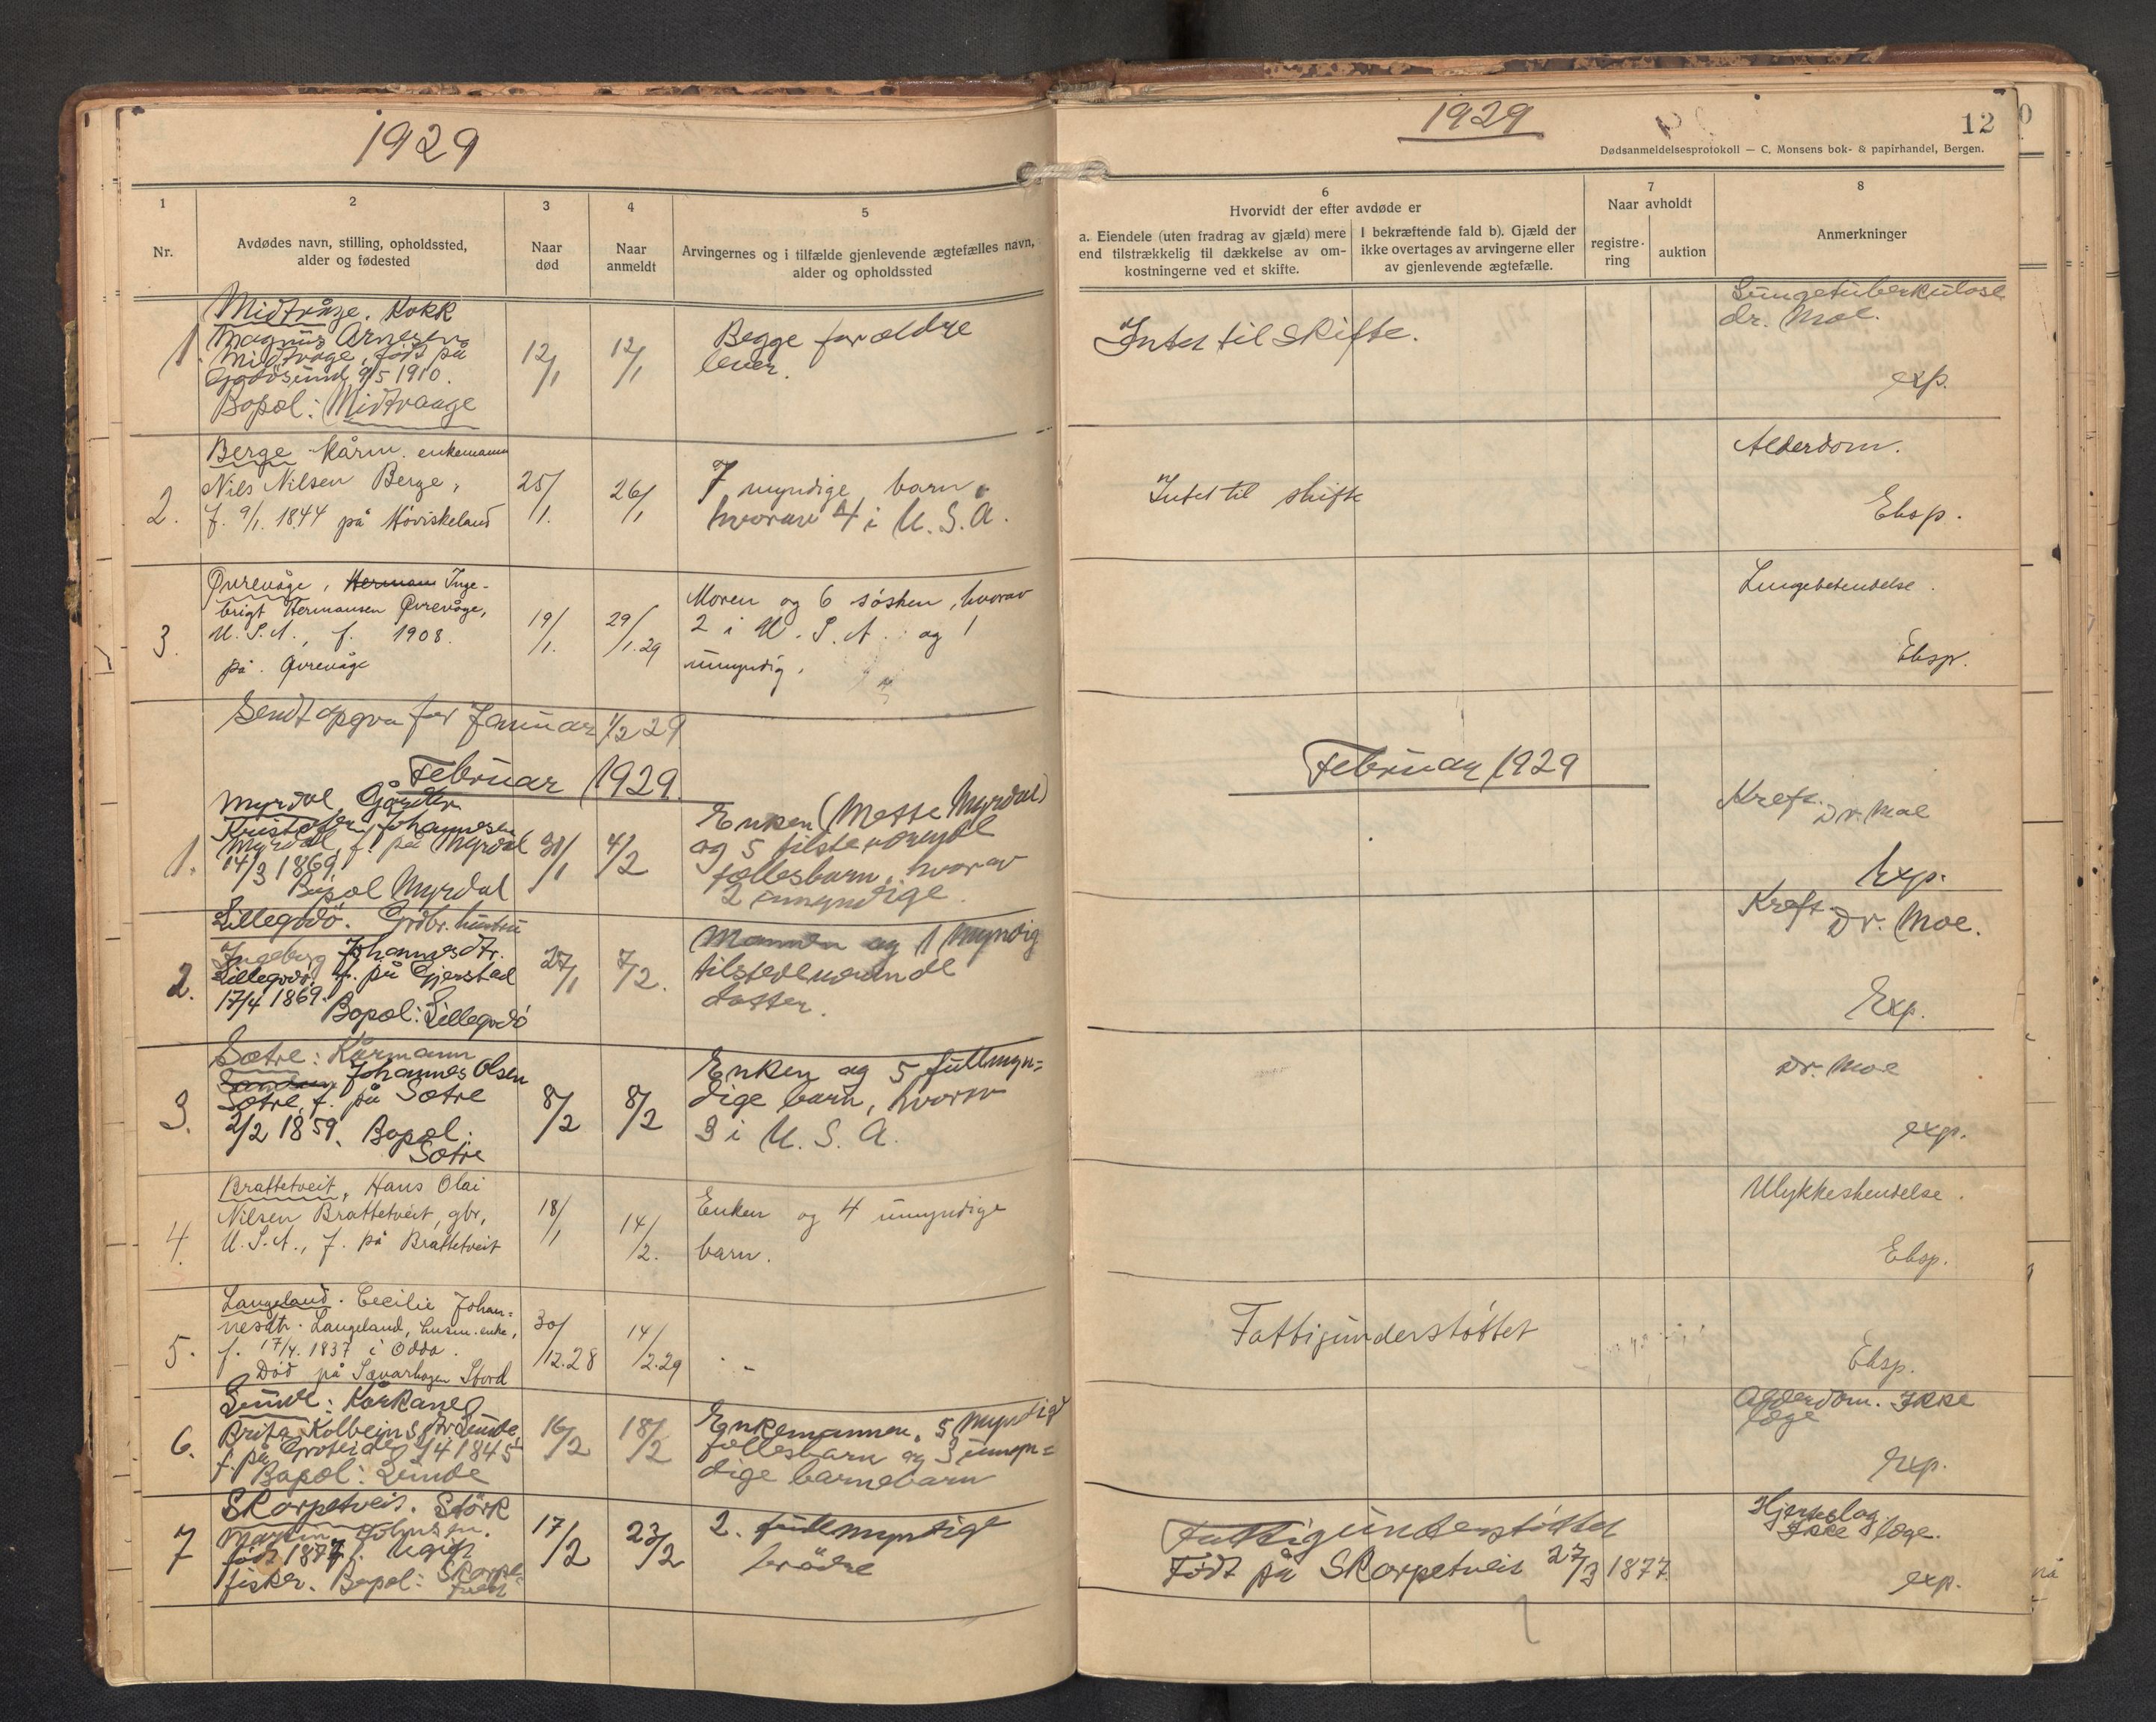 1929
1
Nr.
2
Avdødes navn, stilling, opholdssted,
alder og fødested
3
Naar
død
4
Naar
anmeldt
5
Arvingernes og i tilfælde gjenlevende ægtefælles navn,
alder og opholdssted
1.
Midtvåge. Kokk
Magnus Arnesen
Midtvåge, født på
Godøsund 9/5 1910.
Bopæl: Midtvaage
12/1
12/1
Begge forældre
lever.
2.
Berge kårm. enkemann
Nils Nilsen Berge,
f. 9/1. 1844 på Høviskeland
25/1.
26/1
7 myndige barn,
hvorav 4 i U.S.A.
3.
Øvrevåge, Herman Inge-
brigt Hermansen Øvrevåge,
U.S.A., f. 1908.
på. Øvrevåge
19/1.
29/1.29
Moren og 6 søsken, hvorav
2 i U.S.A. og 1
umyndig.
Sendt opgva for Januar 1/2 29
Februar 1929.
1.
Myrdal Gårdbr.
Kristofer Johannesen
Myrdal, f. på Myrdal
14/3 1869.
Bopæl Myrdal
31/1
4/2
Enken (Mette Myrdal)
og 5 tilstevæerende
fællesbarn, hvorav
2 umyndige.
2.
Lillegodö. Grdbr. hustru
Ingeborg Johannesdtr.
Lillegodö, f. på Gjerstad
17/4 1869.
Bopæl: Lillegodö
27/1
7/2.
Mannen og 1 myndig
tilstedeværende
datter.
3.
Sætre: Kårmann
Johannes Olsen
Sætre, f. på Sætre
2/2 1859. Bopæl:
Sætre
8/2
8/2
Enken og 5 fullmyn=
dige barn, hvorav
3 i U.S.A.
4.
Brattetveit, Hans Olai
Nilsen Brattetveit, gbr,
U.S.A., f. på Brattetveit
18/1
14/2.
Enken og 4 umyndige
barn.
5.
Langeland. Cecilie Johan=
nesdtr. Langeland, husm. enke,
f. 17/4. 1837 i Odda.
Død på Sævarhagen Stord
30/12.28
14/2.29
6.
Lunde: Kårkane
Brita Kolbeinsdtr Lunde,
f. på Groteide 2/4 1845
Bopæl: Lunde
16/2
18/2
Enkemannen, 5 myndige
fællesbarn og 3 umyn=
dige barnebarn
7
Skorpetveit. Störk
Martin Johnsen.
født 1877. Ugift
fisker. Bopæl: Skorpe
tveit
17/2
23/2
2. fullmyndige
brödre
1929
12
Dødsanmeldelsesprotokoll — C. Monsens bok- & papirhandel, Bergen.
6
Hvorvidt der efter avdøde er
a. Eiendele (uten fradrag av gjæld) mere
end tilstrækkelig til dækkelse av om-
kostningerne ved et skifte.
I bekræftende fald b). Gjæld der
ikke overtages av arvingerne eller
av gjenlevende ægtefælle.
7
Naar avholdt
registre-
ring
auktion
8
Anmerkninger
Intet til skifte.
Lungetuberkulose
dr. Moe.
exp.
Intet til skifte
Alderdom.
Eksp.
Lungebetendelse.
Eksp.
Februar 1929
Kreft. Dr. Moe
Exp.
Kreft. Dr. Moe.
Exp.
Dr. Moe
exp.
Ulykkeshendelse.
Eksp.
Fattigunderstøttet
Eksp.
Alderdom. Ikke
læge
Exp.
Fattigunderstöttet
Født på Skorpetveit 27/3 1877.
Hjerteslag.
Ikke læge.
exp.